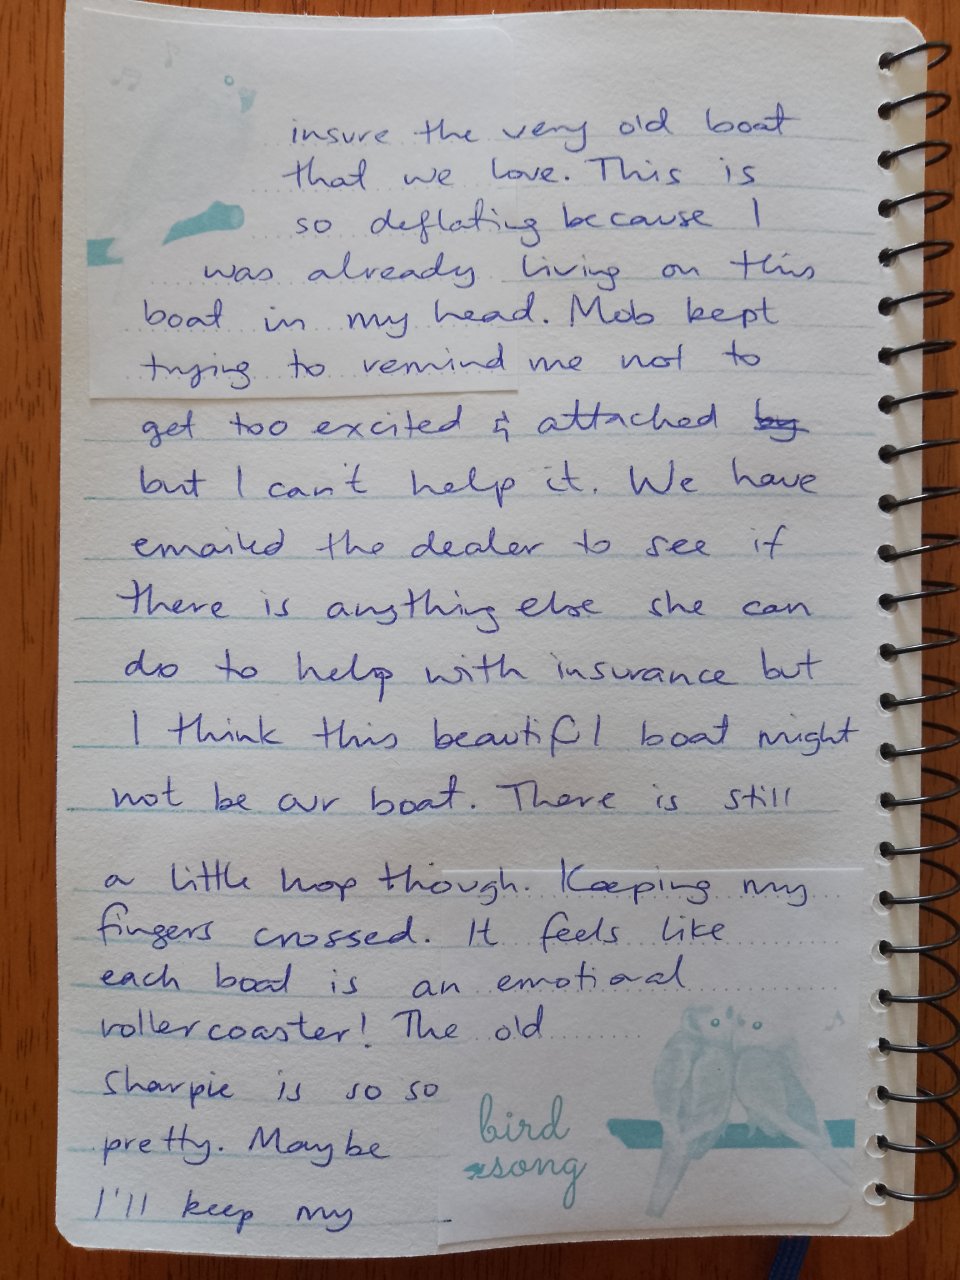 insure the very old boat
that we love. This is
so deflating because I
was already living on this
boat in my head. Mob kept
trying to remind me not to
get too excited & attached by
but I can't help it. We have
emailed the dealer to see if
there is anything else she can
do to help with insurance but
I think this beautifl boat might
not be our boat. There is still
a little hop though. Keeping my
fingers crossed. It feels like
each boat is an emotional
rollercoaster! The old
Sharpie is so so
pretty. Maybe
I'll keep my
bird
song